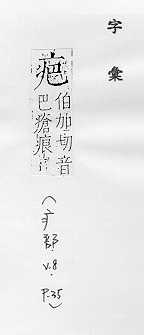 字彙
疤
伯加切音
巴瘡痕
(疒部
V.8
P.35)